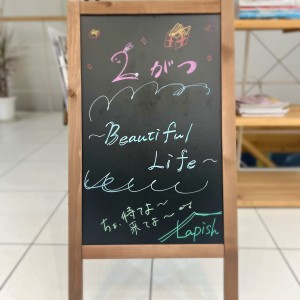 2がつ
~Beautiful
Life~
ちょ、待てよ~
来てよ~
Lapish